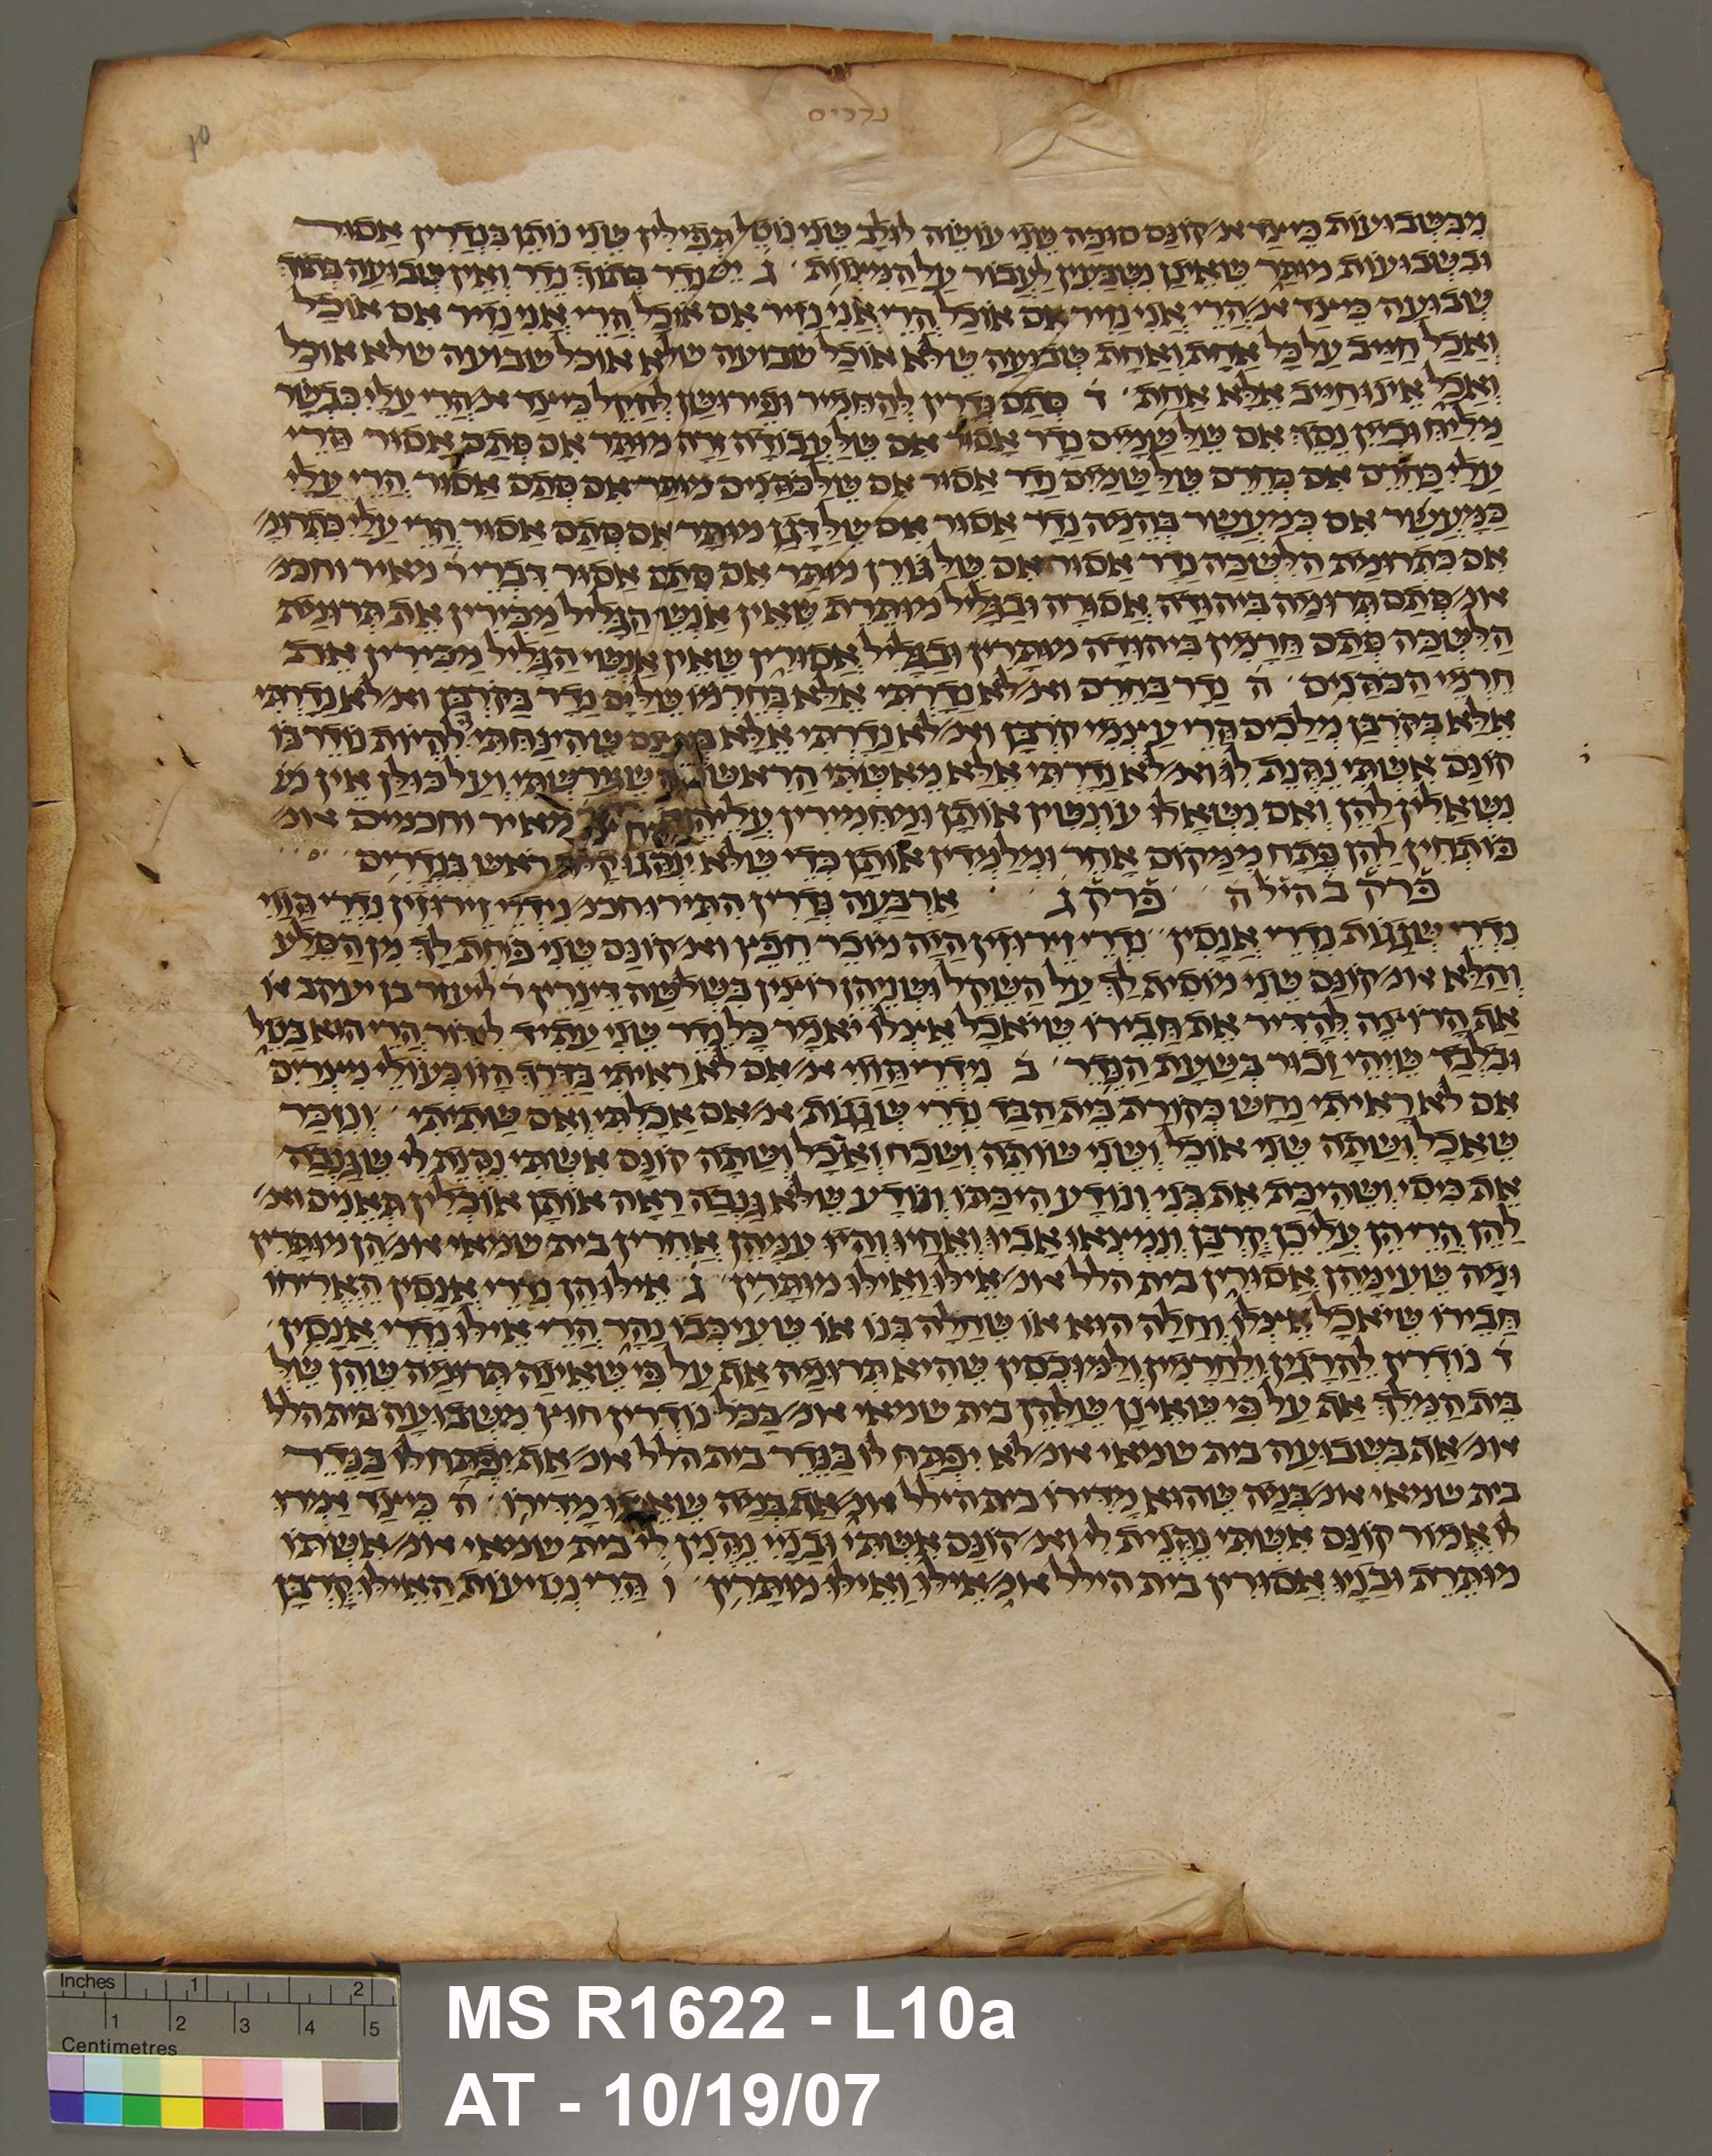 נדרים
10
מבשבועות כיצד אמ׳ קונם סוכה שני עושה לולב שני נוטל תפילין שני נותן בנדרין אסור
ובשבועות מותר שאינן נשבעין לעבור על המיצוות ג יש נדר בתוך נדר ואין שבועה בתוך
שבועה כיצד אמ׳ הרי אני נזיר אם אוכל הרי אני נזיר אם אוכל הרי אני נזיר אם אוכל
ואכל חייב על כל אחת ואחת שבועה שלא אוכל שבועה שלא אוכל שבועה שלא אוכל
ואכל אינו חייב אלא אחת ד סתם נדרין להחמיר ופירושן להקל כיצד אמ׳ הרי עלי כבשר
מליח וכיין נסך אם שלשמים נדר אסור אם שלעבודה זרה מותר אם סתם אסור הרי
עלי כחרם אם כחרם שלשמים נדר אסור אם שלכהנים מותר אם סתם אסור הרי עלי
כמעשר אם כמעשר בהמה נדר אסור אם שלדגן מותר אם סתם אסור הרי עלי כתרומ׳
אם כתרומת הלשכה נדר אסור אם שלגורן מותר אם סתם אסור דברי ר מאיר וחכמ׳
אומ׳ סתם תרומה ביהודה אסורה ובגליל מותרת שאין אנשי הגליל מכירין את תרומת
הלשכה סתם חרמין ביהודה מותרין ובגליל אסורין שאין אנשי הגליל מכירין את
חרמי הכהנים ה נדר בחרם ואמ׳ לא נדרתי אלא בחרמו שלים נדר בקרבן ואמ׳ לא נדרתי
אלא בקרבן מלכים הרי עיצמי קורבן ואמ׳ לא נדרתי אלא שהינחתי להיות נודר בו
קונם אשתי נהנת לי ואמ׳ לא נדרתי אלא מאשתי הראשונה שגרשתי ועל כולן אין
נשאלין להן ואם נשאלו עונשין אותן ומחמירין עליהן מאיר וחכמים אומ׳
פותחין להן פתח ממקום אחר ומלמדין אותן כדי שלא ינהגו קלות ראש בנדרים
פרק ב ה׳ל׳ה פרק ג ארבעה נדרין התירו חכמ׳ נידרי זירוזין נדרי הווי
נדרי שגגות נדרי אנסין נדרי זירוזין היה מוכר חפץ ואמ׳ קונם שני פוחת לך מן הסלע
והלא אומ׳ קונם שני מוסיף לך על השקל ושניהן רוצין בשלשה דינרין ר ליעזר בן יעקב או׳
אף הרוצה להדיר את חבירו שיאכל אצלו יאמר כל נדר שני עתיד לידור הרי הוא בטל
ובלבד שיהי זכור בשעת הנדר ב נידרי הווי אמ׳ אם לא ראיתי בדרך הזו כעולי מצרים
אם לא ראיתי נחש כקורת בית הבד נדרי שגגות אמ׳ אם אכלתי ואם שתיתי ונזכר
שאכל ושתה שני אוכל ושני שותה ושכח ואכל ושתה קונם אשתי נהנת לי שגנבה
את כיסי ושהיכת את בני ונודע היכתו ונודע שלא גנבה ראה אותן אוכלין תאנים ואמ׳
להן הרי הן עליכן קרבן ונמצאו אביו ואחיו והיו עמהן אחרין בית שמאי אומ׳ הן מותרין
ומה שעימהן אסורין בית הלל אומ׳ אילו ואילו מותרין ג אילו הן נדרי אנסין הידירו
חבירו שיאכל אצלו וחלה הוא או שחלה בנו או שעיכבו נהר הרי אילו נדרי אנסין
ד נודרין להרגין ולחרמין ולמוכסין שהיא תרומה אף על פי שאינה תרומה שהן של
בית המלך אף על פי שאינן שלהן בית שמאי אומ׳ בכל נודרין חוץ משבועה בית הלל
אומ׳ אף בשבועה בית שמאי אומ׳ לא יפתח לו בנדר בית הלל אומ׳ אף יפתח לו בנדר
בית שמאי אומ׳ במה שהוא מדירו בית הילל אומ׳ אף במה שאינו מדירו ה כיצד אמרו
לו אמור קונם אשתי נהנית לי ואמ׳ קונם אשתי ובניי נהנין לי בית שמאי אומ׳ אשתו
מותרת ובניו אסורין בית הילל אומ׳ אילו ואילו מותרין ו הרי נטיעות האילו קרבן
Inches 1 2
1 2 3 4 5
Centimetres
MS R1622 - L10a
AT - 10/19/07